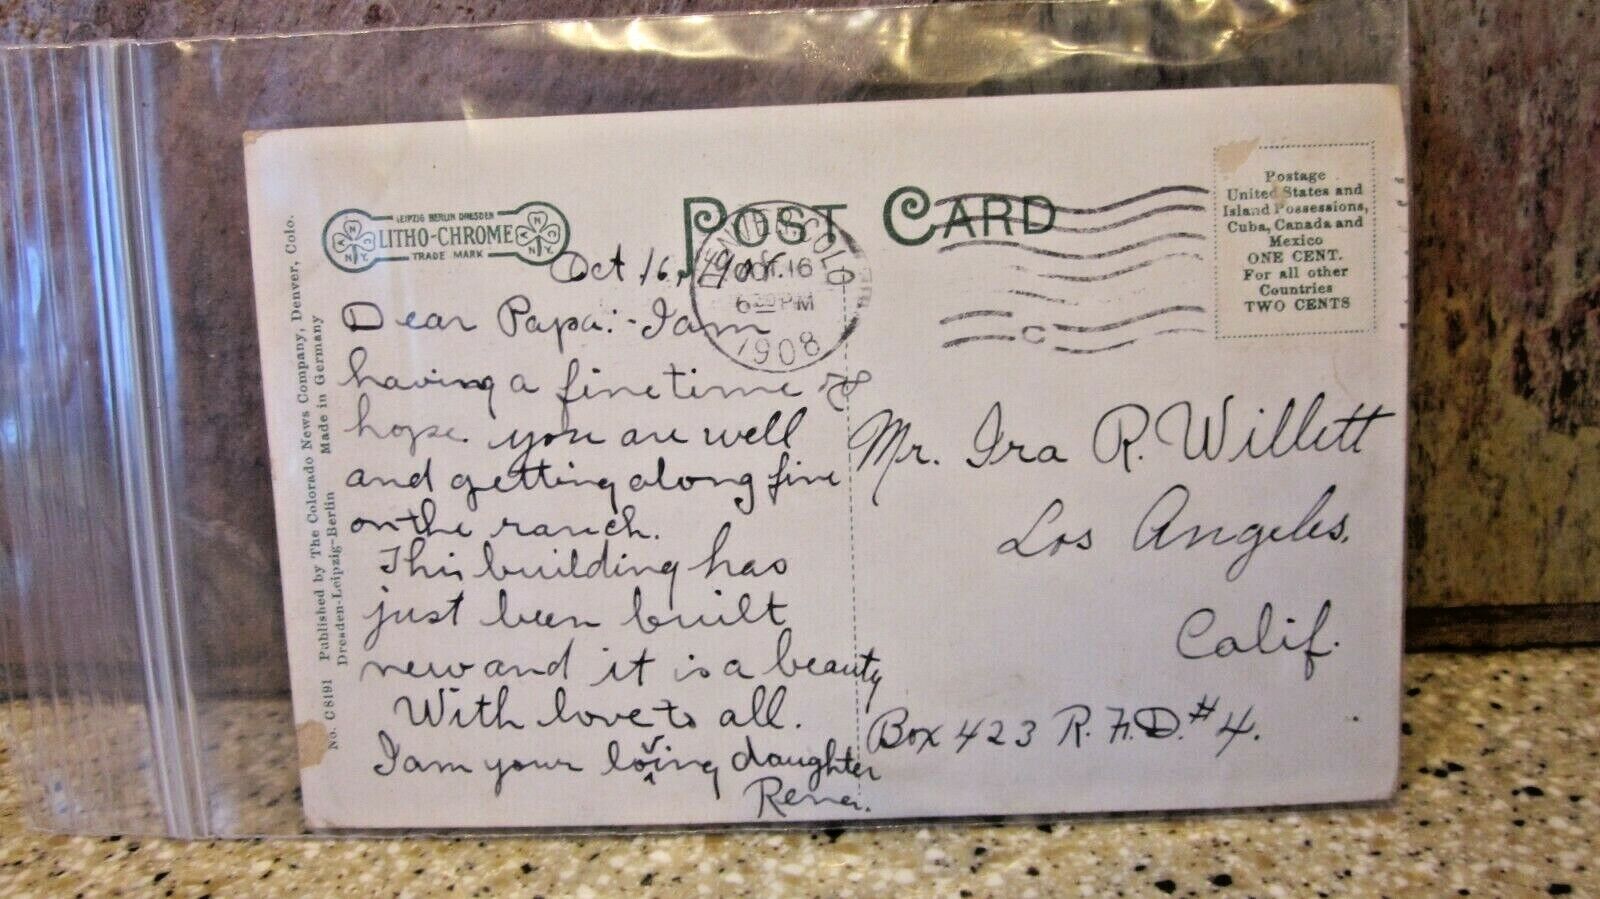 LEIPZIG BERLIN DRESDEN
LITHO-CHROME
TRADE MARK
POST CARD
OCT 16
6 30 PM
1908
C
Postage
United States and
Island Possessions,
Cuba, Canada and
Mexico
ONE CENT.
For all other
Countries
TWO CENTS
Oct 16,
Dear Papa:- I am
having a fine time &
hope you are well
and getting along fine
on the ranch.
This building has
just been built
new and it is a beauty
With love to all.
I am your loving daughter
Rena.
Mr. Ira R. Willett
Los Angeles,
Calif.
Box 423 R. F. D. #4.
No. C 8191 Published by The Colorado News Company, Denver, Colo.
Dresden-Leipzig-Berlin Made in Germany